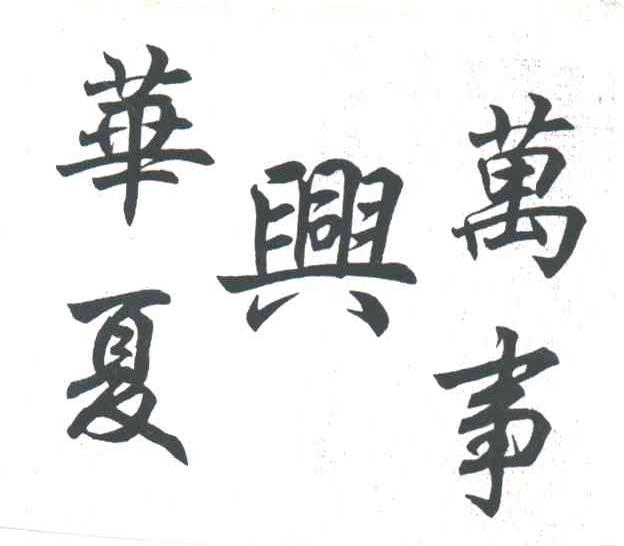 萬事
興
華夏